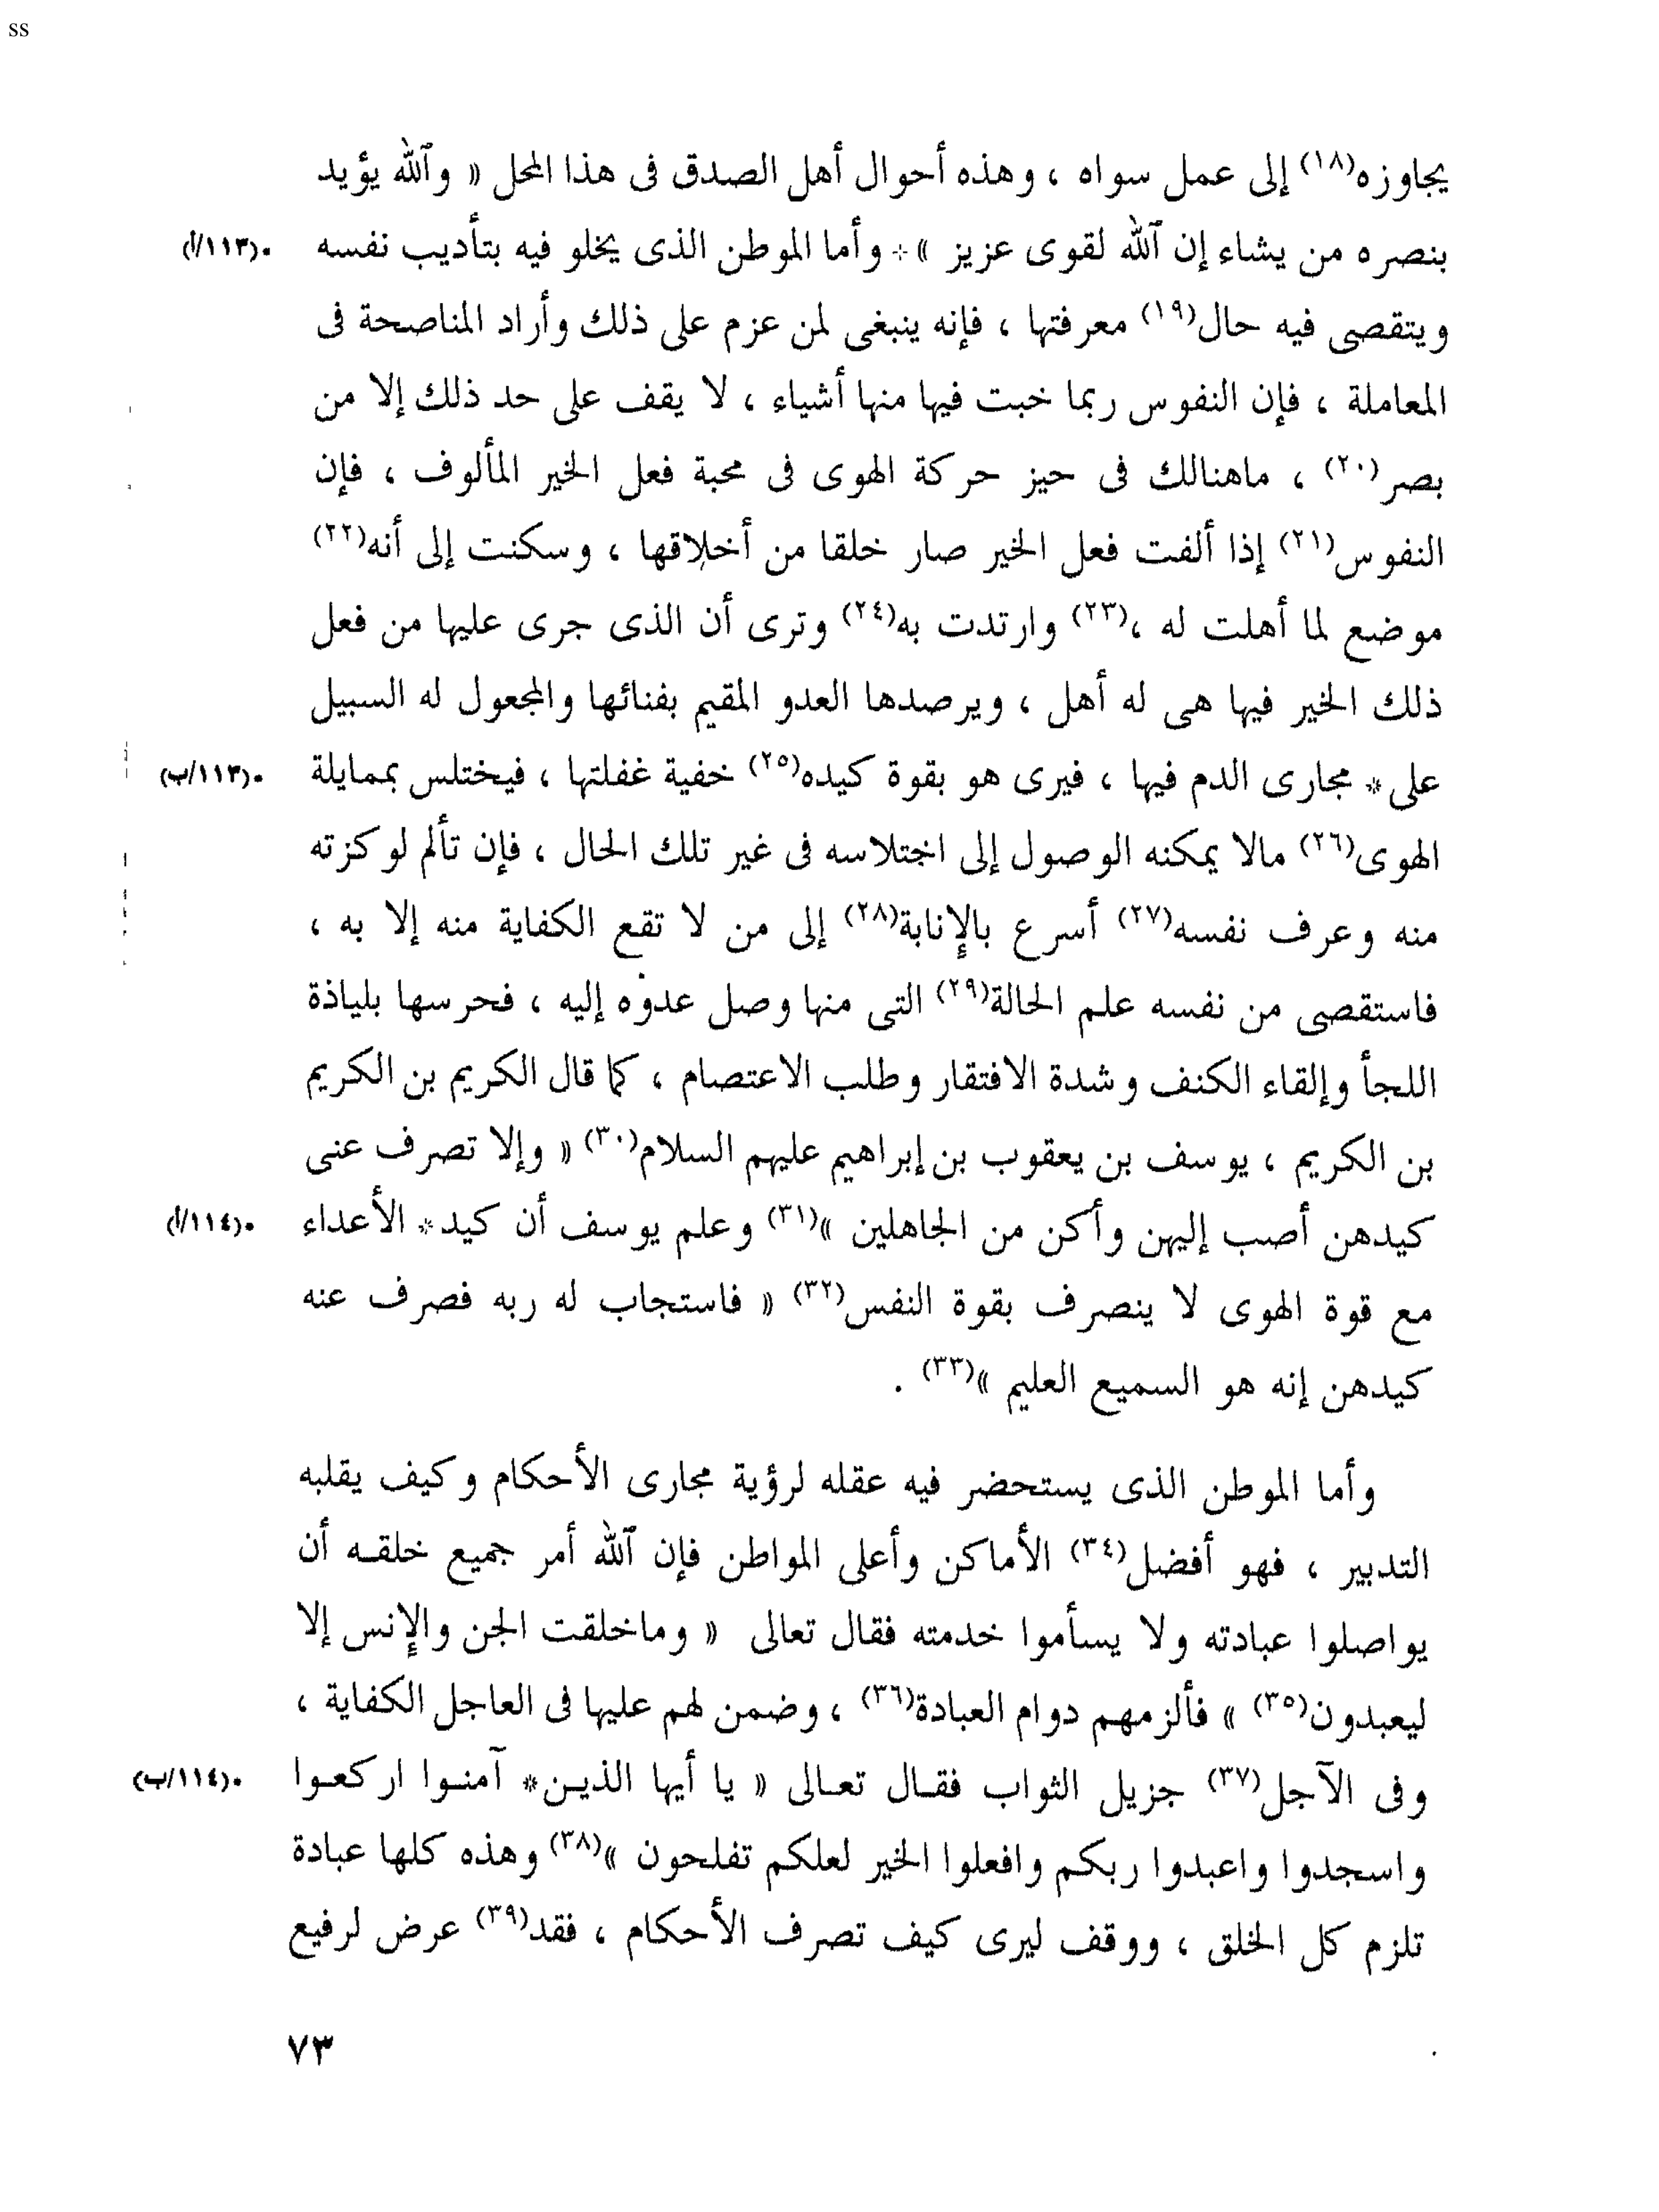 ss
يجاوزه(١٨) إلى عمل سواه ، وهذه أحوال أهل الصدق فى هذا المحل « والله يؤيد
بنصره من يشاء إن الله لقوى عزيز » * وأما الموطن الذى يخلو فيه بتأديب نفسه •(١١٣/أ)
ويتقصى فيه حال(١٩) معرفتها ، فإنه ينبغى لمن عزم على ذلك وأراد المناصحة فى
المعاملة ، فإن النفوس ربما خبت فيها منها أشياء ، لا يقف على حد ذلك إلا من
بصر(٢٠) ، ماهنالك فى حيز حركة الهوى فى محبة فعل الخير المألوف ، فإن
النفوس(٢١) إذا ألفت فعل الخير صار خلقا من أخلاقها ، وسكنت إلى أنه(٢٢)
موضع لما أهلت له ،(٢٣) وارتدت به(٢٤) وترى أن الذى جرى عليها من فعل
ذلك الخير فيها هى له أهل ، ويرصدها العدو المقيم بفنائها والمجعول له السبيل
على * مجارى الدم فيها ، فيرى هو بقوة كيده(٢٥) خفية غفلتها ، فيختلس بممايلة •(١١٣/ب)
الهوى(٢٦) مالا يمكنه الوصول إلى اختلاسه فى غير تلك الحال ، فإن تألم لوكزته
منه وعرف نفسه(٢٧) أسرع بالإنابة(٢٨) إلى من لا تقع الكفاية منه إلا به ،
فاستقصى من نفسه علم الحالة(٢٩) التى منها وصل عدوه إليه ، فحرسها بلياذة
اللجأ وإلقاء الكنف وشدة الافتقار وطلب الاعتصام ، كما قال الكريم بن الكريم
بن الكريم ، يوسف بن يعقوب بن إبراهيم عليهم السلام(٣٠) « وإلا تصرف عنى
كيدهن أصب إليهن وأكن من الجاهلين »(٣١) وعلم يوسف أن كيد * الأعداء •(١١٤/أ)
مع قوة الهوى لا ينصرف بقوة النفس(٣٢) « فاستجاب له ربه فصرف عنه
كيدهن إنه هو السميع العليم »(٣٣) .
وأما الموطن الذى يستحضر فيه عقله لرؤية مجارى الأحكام وكيف يقلبه
التدبير ، فهو أفضل(٣٤) الأماكن وأعلى المواطن فإن الله أمر جميع خلقه أن
يواصلوا عبادته ولا يسأموا خدمته فقال تعالى « وماخلقت الجن والإنس إلا
ليعبدون(٣٥) » فألزمهم دوام العبادة(٣٦) ، وضمن لهم عليها فى العاجل الكفاية ،
وفى الآجل(٣٧) جزيل الثواب فقال تعالى « يا أيها الذين * آمنوا اركعوا •(١١٤/ب)
واسجدوا واعبدوا ربكم وافعلوا الخير لعلكم تفلحون »(٣٨) وهذه كلها عبادة
تلزم كل الخلق ، ووقف ليرى كيف تصرف الأحكام ، فقد(٣٩) عرض لرفيع
٧٣